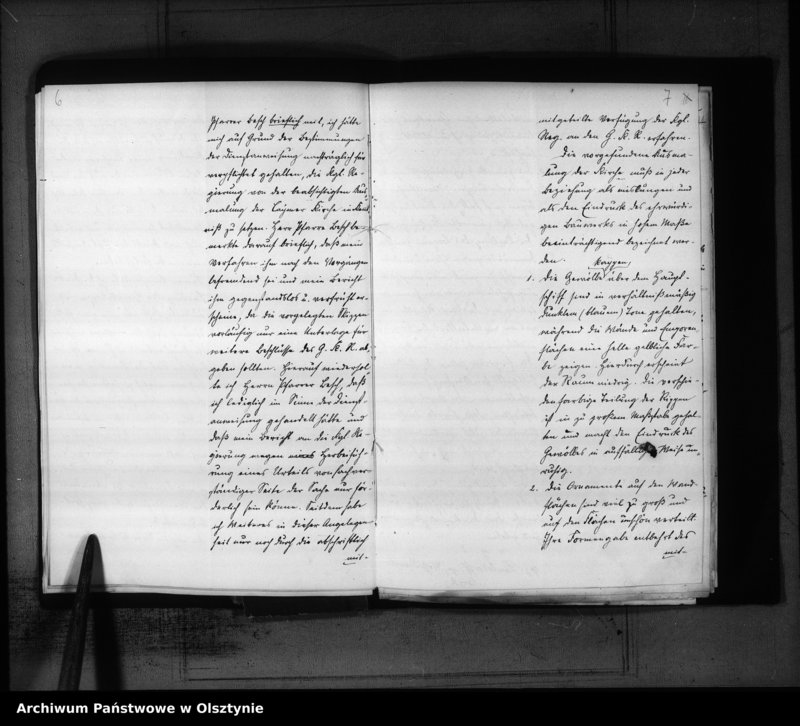 6
Pfarrer Besch brieflich mit, ich hätte
mich auf Grund der Bestimmungen
der Dienstanweisung nachträglich für
verpflichtet gehalten, die Kgl. Re-
gierung von der beabsichtigten Aus-
malung der Kirche in Kennt-
niß zu setzen. Herr Pfarrer Besch be-
merkte darauf brieflich, daß mein
Verfahren ihm nach den Vorgängen
befremdend sei und mein Bericht
ihm gegenstandslos u. verfrüht er-
scheine, da die vorgelegten Skizzen
vorläufig nur eine Unterlage für
weitere Beschlüsse des G. K. R. ab-
geben sollten. Hierauf wiederhol-
te ich Herrn Pfarrer Besch, daß
ich lediglich im Sinne der Dienst-
anweisung gehandelt hätte und
daß mein Bericht an die Kgl. Re-
gierung wegen Herbeifüh-
rung eines Urteils von sachver-
ständiger Seite der Sache nur för-
derlich sein könne. Seitdem habe
ich Weiteres in dieser Angelegen-
heit nur noch durch die abschriftlich
mit-
7
mitgeteilte Verfügung der Kgl.
Reg. an den G. K. R. erfahren.
Die vorgefundene Ausma-
lung der Kirche muß in jeder
Beziehung als mislungen und
als den Eindruck des ehrwürdi-
gen Bauwerks in hohem Maße
beeinträchtigend bezeichnet wer-
den.
Kappen
1. Die Gewölbe über dem Haupt-
schiff sind in verhältnißmäßig
dunklem (blauem) Tone gehalten,
während die Wände und Emporen-
flächen eine helle gelbliche Far-
be zeigen. Hierdurch erscheint
der Raum niedrig. Die verschie-
den farbige Teilung der Rippen
ist in zu großem Maßstabe gehal-
ten und macht den Eindruck des
Gewölbes in auffälliger Weise un-
ruhig.
2. Die Ornamente auf den Wand-
flächen sind viel zu groß und
auf den Flächen unschön verteilt.
Ihre Formengabe entbehrt des
mit-
Archiwum Państwowe w Olsztynie